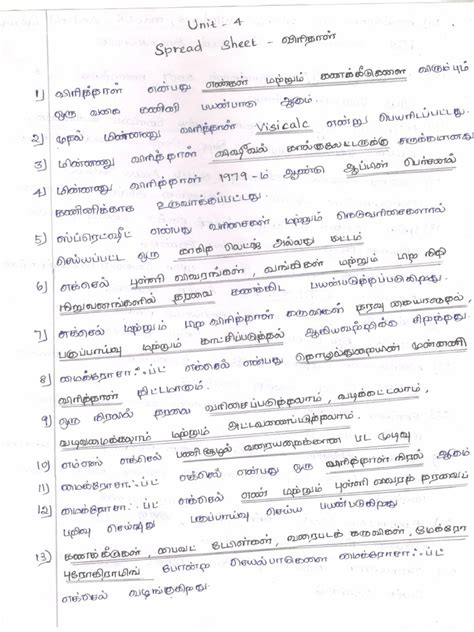 Unit - 4
Spread Sheet - விரிதாள்
1) விரித்தாள் என்பது எண்கள் மற்றும் கணக்கீடுகளை விரும்பும்
ஒரு வகை கணினி பயன்பாடு ஆகும்.
2) முதல் மின்னணு விரித்தாள் Visicalc என்று பெயரிடப்பட்டது.
3) மின்னணு விரித்தாள் விஷிவல் கால்குலேட்டருக்கு சுருக்கமானது
4) மின்னணு விரித்தாள் 1979-ம் ஆண்டு ஆப்பிள் பெர்சனல்
கணினிக்காக உருவாக்கப்பட்டது.
5) ஸ்ப்ரெட்ஷீட் என்பது வரிசைகள் மற்றும் நெடுவரிசைகளால்
செய்யப்பட்ட ஒரு காகித லெட்ஜர் அல்லது கட்டம்
6) எக்செல் புள்ளி விவரங்கள், வங்கிகள் மற்றும் பிற நிதி
நிறுவனங்களில் தரவை கணக்கிட பயன்படுத்தப்படுகிறது.
7) எக்செல் மற்றும் பிற விரித்தாள் கருவிகள் தரவு கையாளுதல்,
பகுப்பாய்வு மற்றும் காட்சிப்படுத்தல் ஆகியவற்றிற்கு சிறந்தது.
8) மைக்ரோசாஃப்ட் எக்செல் என்பது தொழில்துறையின் முன்னணி
விரித்தாள் திட்டமாகும்.
9) ஒரு நிரலில் தரவை வரிசைப்படுத்தலாம், வடிக்கட்டலாம்,
வடிவமைக்கலாம் மற்றும் அட்டவணைப்படுத்தலாம்.
10) எம்எஸ் எக்செல் பணிசூழல் வரையறைக்கான பட முடிவு
11) மைக்ரோசாஃப்ட் எக்செல் என்பது ஒரு விரித்தாள் நிரல் ஆகும்
12) மைக்ரோசாஃப்ட் எக்செல் எண் மற்றும் புள்ளிவிவரத் தரவைப்
பதிவு செய்யது பகுப்பாய்வு செய்ய பயன்படுகிறது.
13) கணக்கீடுகள், பைவட் டேபிள்கள், வரைபடக் கருவிகள், மேக்ரோ
புரோகிராமிங் போன்ற செயல்பாடுகளை மைக்ரோசாஃப்ட்
எக்செல் வழங்குகிறது.